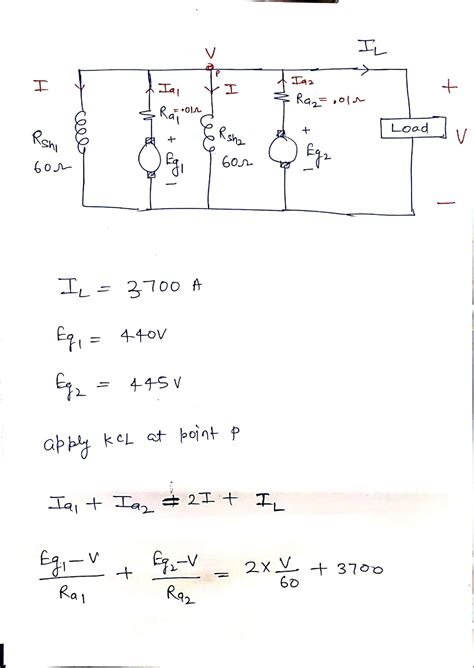 I_L
V
P
I
Ia₁
I
Ia₂
+
Ra₁=.01Ω
Ra₂=.01Ω
R_sh₁
60Ω
+
Eg₁
−
R_sh₂
60Ω
+
Eg₂
−
Load
V
−
I_L = 3700 A
Eg₁ = 440V
Eg₂ = 445V
apply KCL at point P
Ia₁ + Ia₂ = 2I + I_L
(Eg₁−V)/Ra₁ + (Eg₂−V)/Ra₂ = 2×V/60 + 3700